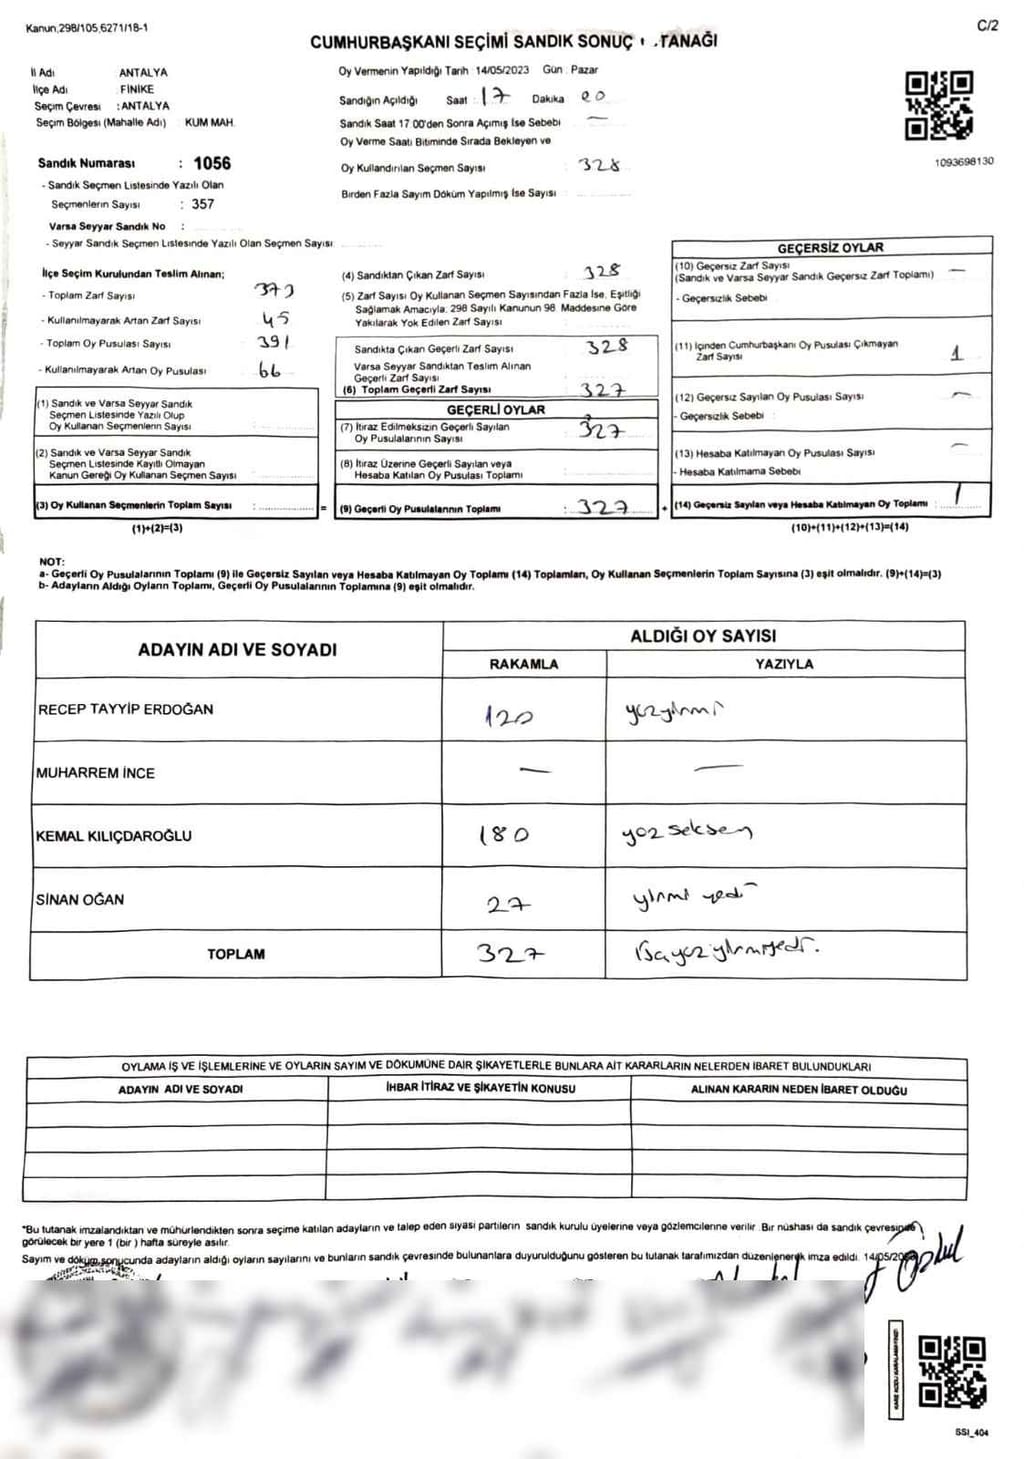 Kanun,298/105,6271/18-1
C/2
CUMHURBAŞKANI SEÇİMİ SANDIK SONUÇ TANAĞI
İl Adı ANTALYA
İlçe Adı FİNİKE
Seçim Çevresi :ANTALYA
Seçim Bölgesi (Mahalle Adı) KUM MAH.
Sandık Numarası : 1056
- Sandık Seçmen Listesinde Yazılı Olan
Seçmenlerin Sayısı : 357
Varsa Seyyar Sandık No :
- Seyyar Sandık Seçmen Listesinde Yazılı Olan Seçmen Sayısı
Oy Vermenin Yapıldığı Tarih 14/05/2023 Gün Pazar
Sandığın Açıldığı Saat 17 Dakika 20
Sandık Saat 17.00'den Sonra Açımış İse Sebebi —
Oy Verme Saati Bitiminde Sırada Bekleyen ve
Oy Kullandırılan Seçmen Sayısı : 328
Birden Fazla Sayım Döküm Yapılmış İse Sayısı
1093698130
İlçe Seçim Kurulundan Teslim Alınan;
- Toplam Zarf Sayısı
- Kullanılmayarak Artan Zarf Sayısı 45
- Toplam Oy Pusulası Sayısı 391
- Kullanılmayarak Artan Oy Pusulası 66
(1) Sandık ve Varsa Seyyar Sandık
Seçmen Listesinde Yazılı Olup
Oy Kullanan Seçmenlerin Sayısı
(2) Sandık ve Varsa Seyyar Sandık
Seçmen Listesinde Kayıtlı Olmayan
Kanun Gereği Oy Kullanan Seçmen Sayısı
(3) Oy Kullanan Seçmenlerin Toplam Sayısı : =
(1)+(2)=(3)
(4) Sandıktan Çıkan Zarf Sayısı : 328
(5) Zarf Sayısı Oy Kullanan Seçmen Sayısından Fazla İse, Eşitliği
Sağlamak Amacıyla, 298 Sayılı Kanunun 98. Maddesine Göre
Yakılarak Yok Edilen Zarf Sayısı
Sandıkta Çıkan Geçerli Zarf Sayısı 328
Varsa Seyyar Sandıktan Teslim Alınan
Geçerli Zarf Sayısı
(6) Toplam Geçerli Zarf Sayısı 327
GEÇERLİ OYLAR
(7) İtiraz Edilmeksizin Geçerli Sayılan
Oy Pusulalarının Sayısı 327
(8) İtiraz Üzerine Geçerli Sayılan veya
Hesaba Katılan Oy Pusulası Toplamı
(9) Geçerli Oy Pusulalarının Toplamı : 327 +
GEÇERSİZ OYLAR
(10) Geçersiz Zarf Sayısı
(Sandık ve Varsa Seyyar Sandık Geçersiz Zarf Toplamı) —
- Geçersizlik Sebebi
(11) İçinden Cumhurbaşkanı Oy Pusulası Çıkmayan
Zarf Sayısı 1
(12) Geçersiz Sayılan Oy Pusulası Sayısı —
- Geçersizlik Sebebi :
(13) Hesaba Katılmayan Oy Pusulası Sayısı —
- Hesaba Katılmama Sebebi
(14) Geçersiz Sayılan veya Hesaba Katılmayan Oy Toplamı : 1
(10)+(11)+(12)+(13)=(14)
NOT:
a- Geçerli Oy Pusulalarının Toplamı (9) ile Geçersiz Sayılan veya Hesaba Katılmayan Oy Toplamı (14) Toplamları, Oy Kullanan Seçmenlerin Toplam Sayısına (3) eşit olmalıdır. (9)+(14)=(3)
b- Adayların Aldığı Oyların Toplamı, Geçerli Oy Pusulalarının Toplamına (9) eşit olmalıdır.
ADAYIN ADI VE SOYADI
ALDIĞI OY SAYISI
RAKAMLA YAZIYLA
RECEP TAYYİP ERDOĞAN 120 yüzyirmi
MUHARREM İNCE — —
KEMAL KILIÇDAROĞLU 180 yüz seksen
SİNAN OĞAN 27 yirmi yedi
TOPLAM 327 yirmiyedi.
OYLAMA İŞ VE İŞLEMLERİNE VE OYLARIN SAYIM VE DÖKÜMÜNE DAİR ŞİKAYETLERLE BUNLARA AİT KARARLARIN NELERDEN İBARET BULUNDUKLARI
ADAYIN ADI VE SOYADI İHBAR İTİRAZ VE ŞİKAYETİN KONUSU ALINAN KARARIN NEDEN İBARET OLDUĞU
*Bu tutanak imzalandıktan ve mühürlendikten sonra seçime katılan adayların ve talep eden siyasi partilerin sandık kurulu üyelerine veya gözlemcilerine verilir. Bir nüshası da sandık çevresinde
görülecek bir yere 1 (bir ) hafta süreyle asılır.
Sayım ve döküm sonucunda adayların aldığı oyların sayılarını ve bunların sandık çevresinde bulunanlara duyurulduğunu gösteren bu tutanak tarafımızdan düzenlenerek imza edildi. 14/05/2023
KARE KODU KARALAMAYINIZ!
SSI_404